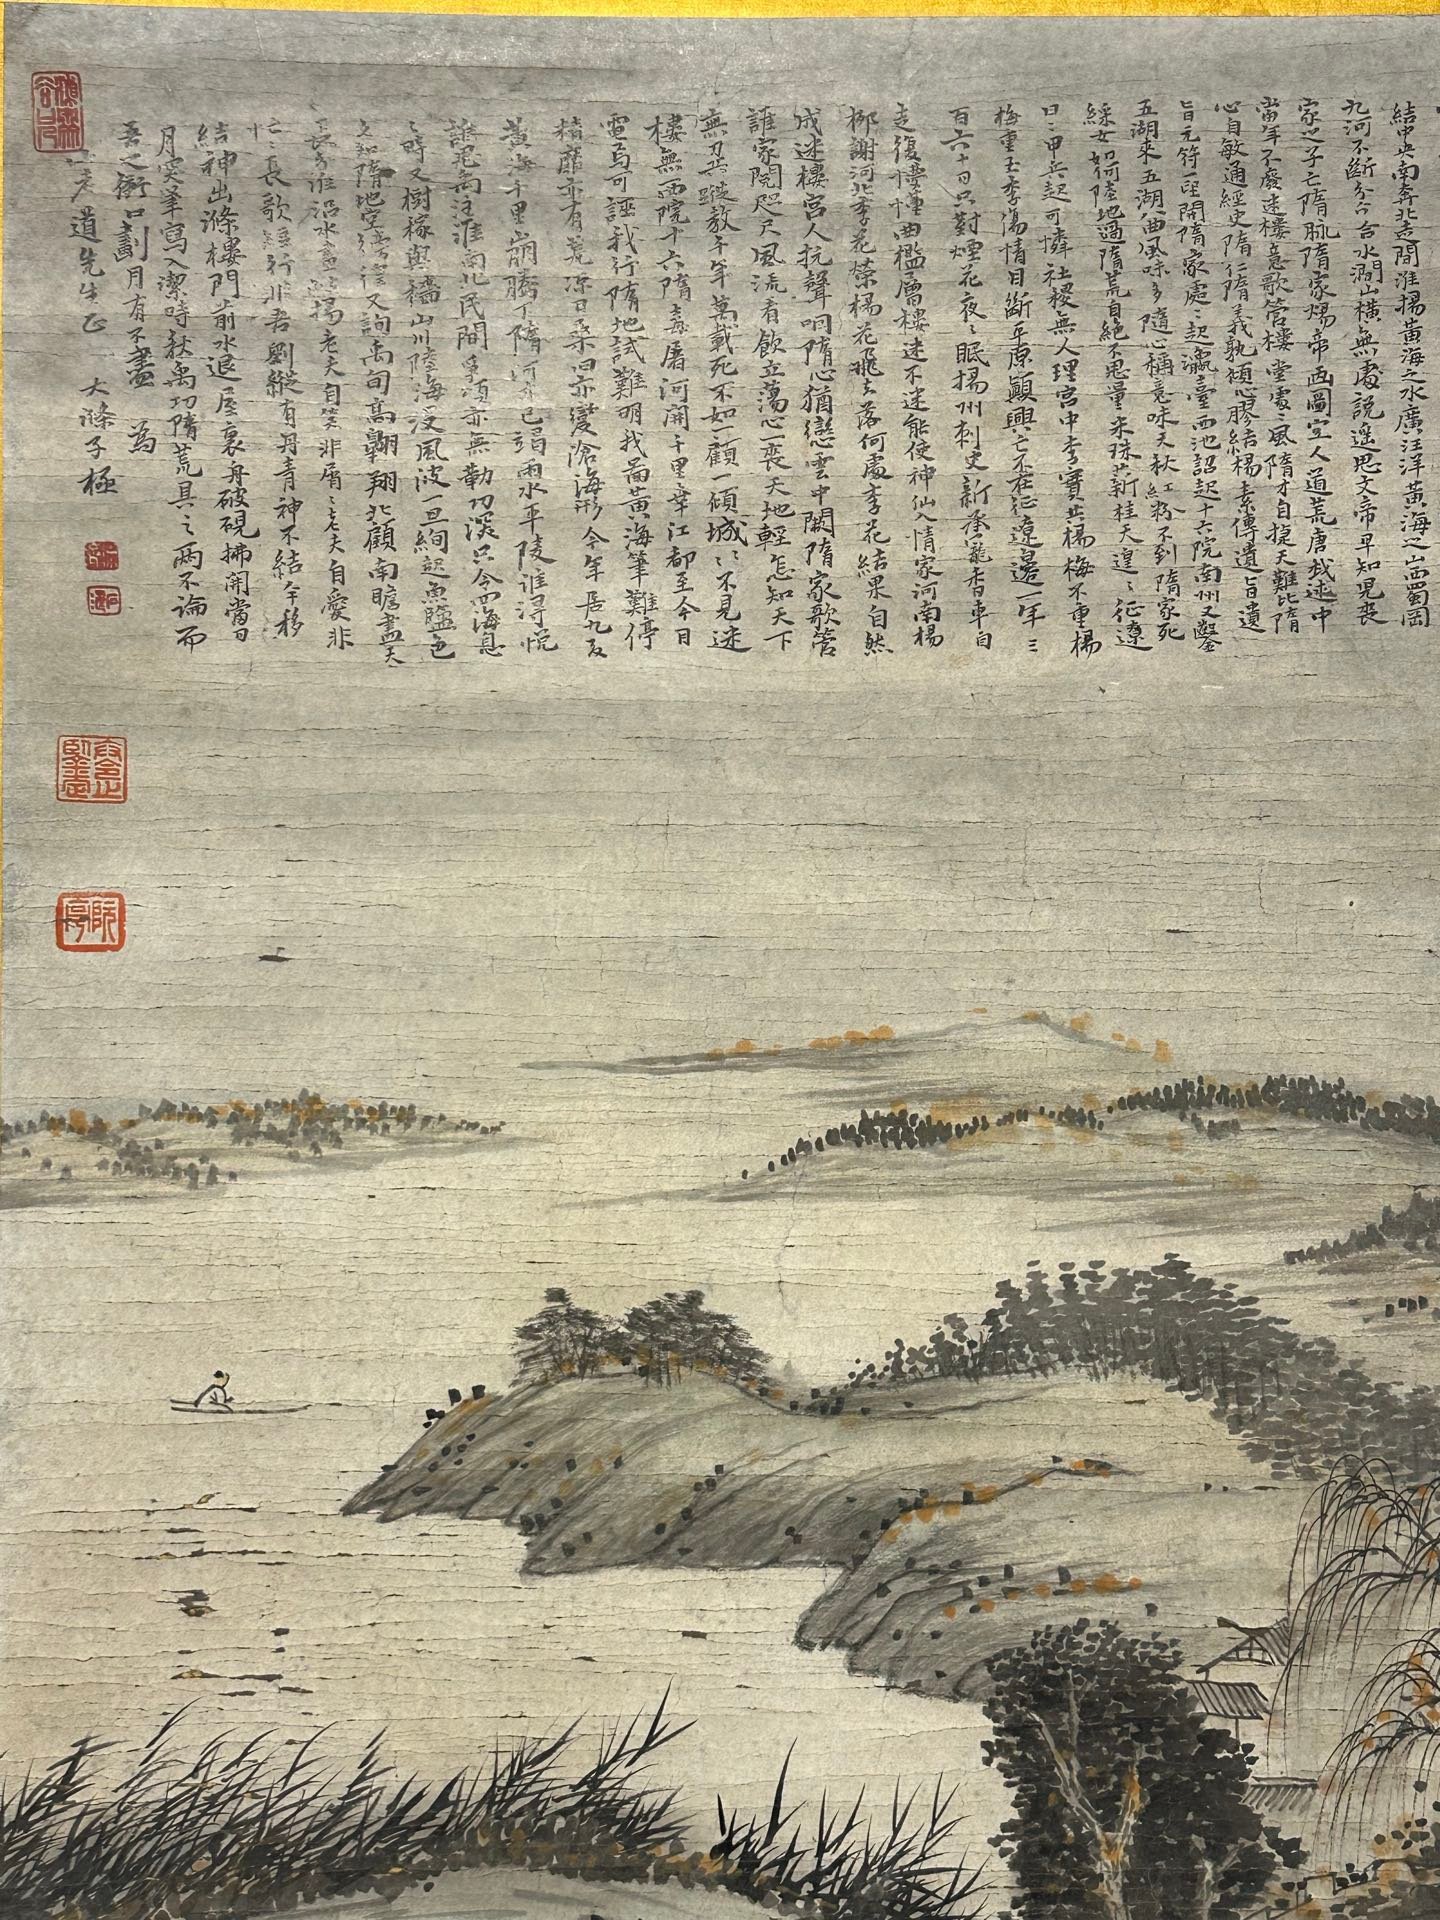 結中央南奔北去間淮揚黃海之水廣汪洋黃海之山蜀岡
九河不斷分今古水濶山橫無處說遥思文帝早知兒喪
家之子亡隋脈隋家煬帝西圖空人道荒唐我述中
當年不廢迷樓意歌管樓堂處處風隋才自捷天難比隋
心自敏通經史隋仁隋義孰傾心膠結楊素傳遺旨遺
旨元符一旦開隋家處處起瀛臺西池詔起十六院南州又鑿
五湖來五湖八曲風味多隨心稱意味天秋紅粉不到隋家死
綵女如何陸地過隋荒自絕不思量米珠薪桂天遑遑征遼
日甲兵起可憐社稷無人理宮中李寶此楊梅不重楊
梅重玉李傷情目斷平原巔興亡不在征遼邊一年三
百六十日只對煙花夜夜眠揚州刺史新承寵香車自
走復憧憧曲檻層樓迷不迷能使神仙入情家河南楊
柳謝河北李花榮楊花飛去落何處李花結果自然
成迷樓宮人抗聲唱隋心猶戀雲中闕隋家歌管
誰家院咫尺風流看飲立蕩心一喪天地輕怎知天下
無刀兵蹤教千年萬載死不如一顧一傾城城不見迷
樓無西院十六隋 屠河開千里幸江都至今日
電焉可誣我行隋地試難明我圖黃海筆難停
精靡亦有荒涼日桑田亦變滄海形今年居九夏
黃海千里崩騰下隋河已 雨水平陵誰得悅
誰 高注淮南北民間事頃亦無勒刀深只今四海息
時又樹稼與穡山川陸海沒風波一旦絢起魚鹽色
文 隋地空 又 禹甸高翺翔北顧南瞻盡天
長 淮沿水 揚老夫自笑非屑屑老夫自愛非
忙忙長歌 行非吾劉縱有丹青神不結午移
結神出滌樓門前水退屋裏舟破硯拂開當日
月突筆寫入潔時秋禹功隋荒具之兩不論而
吾之衝口劃月有不盡 為
老道先生正 大滌子極
阮亨